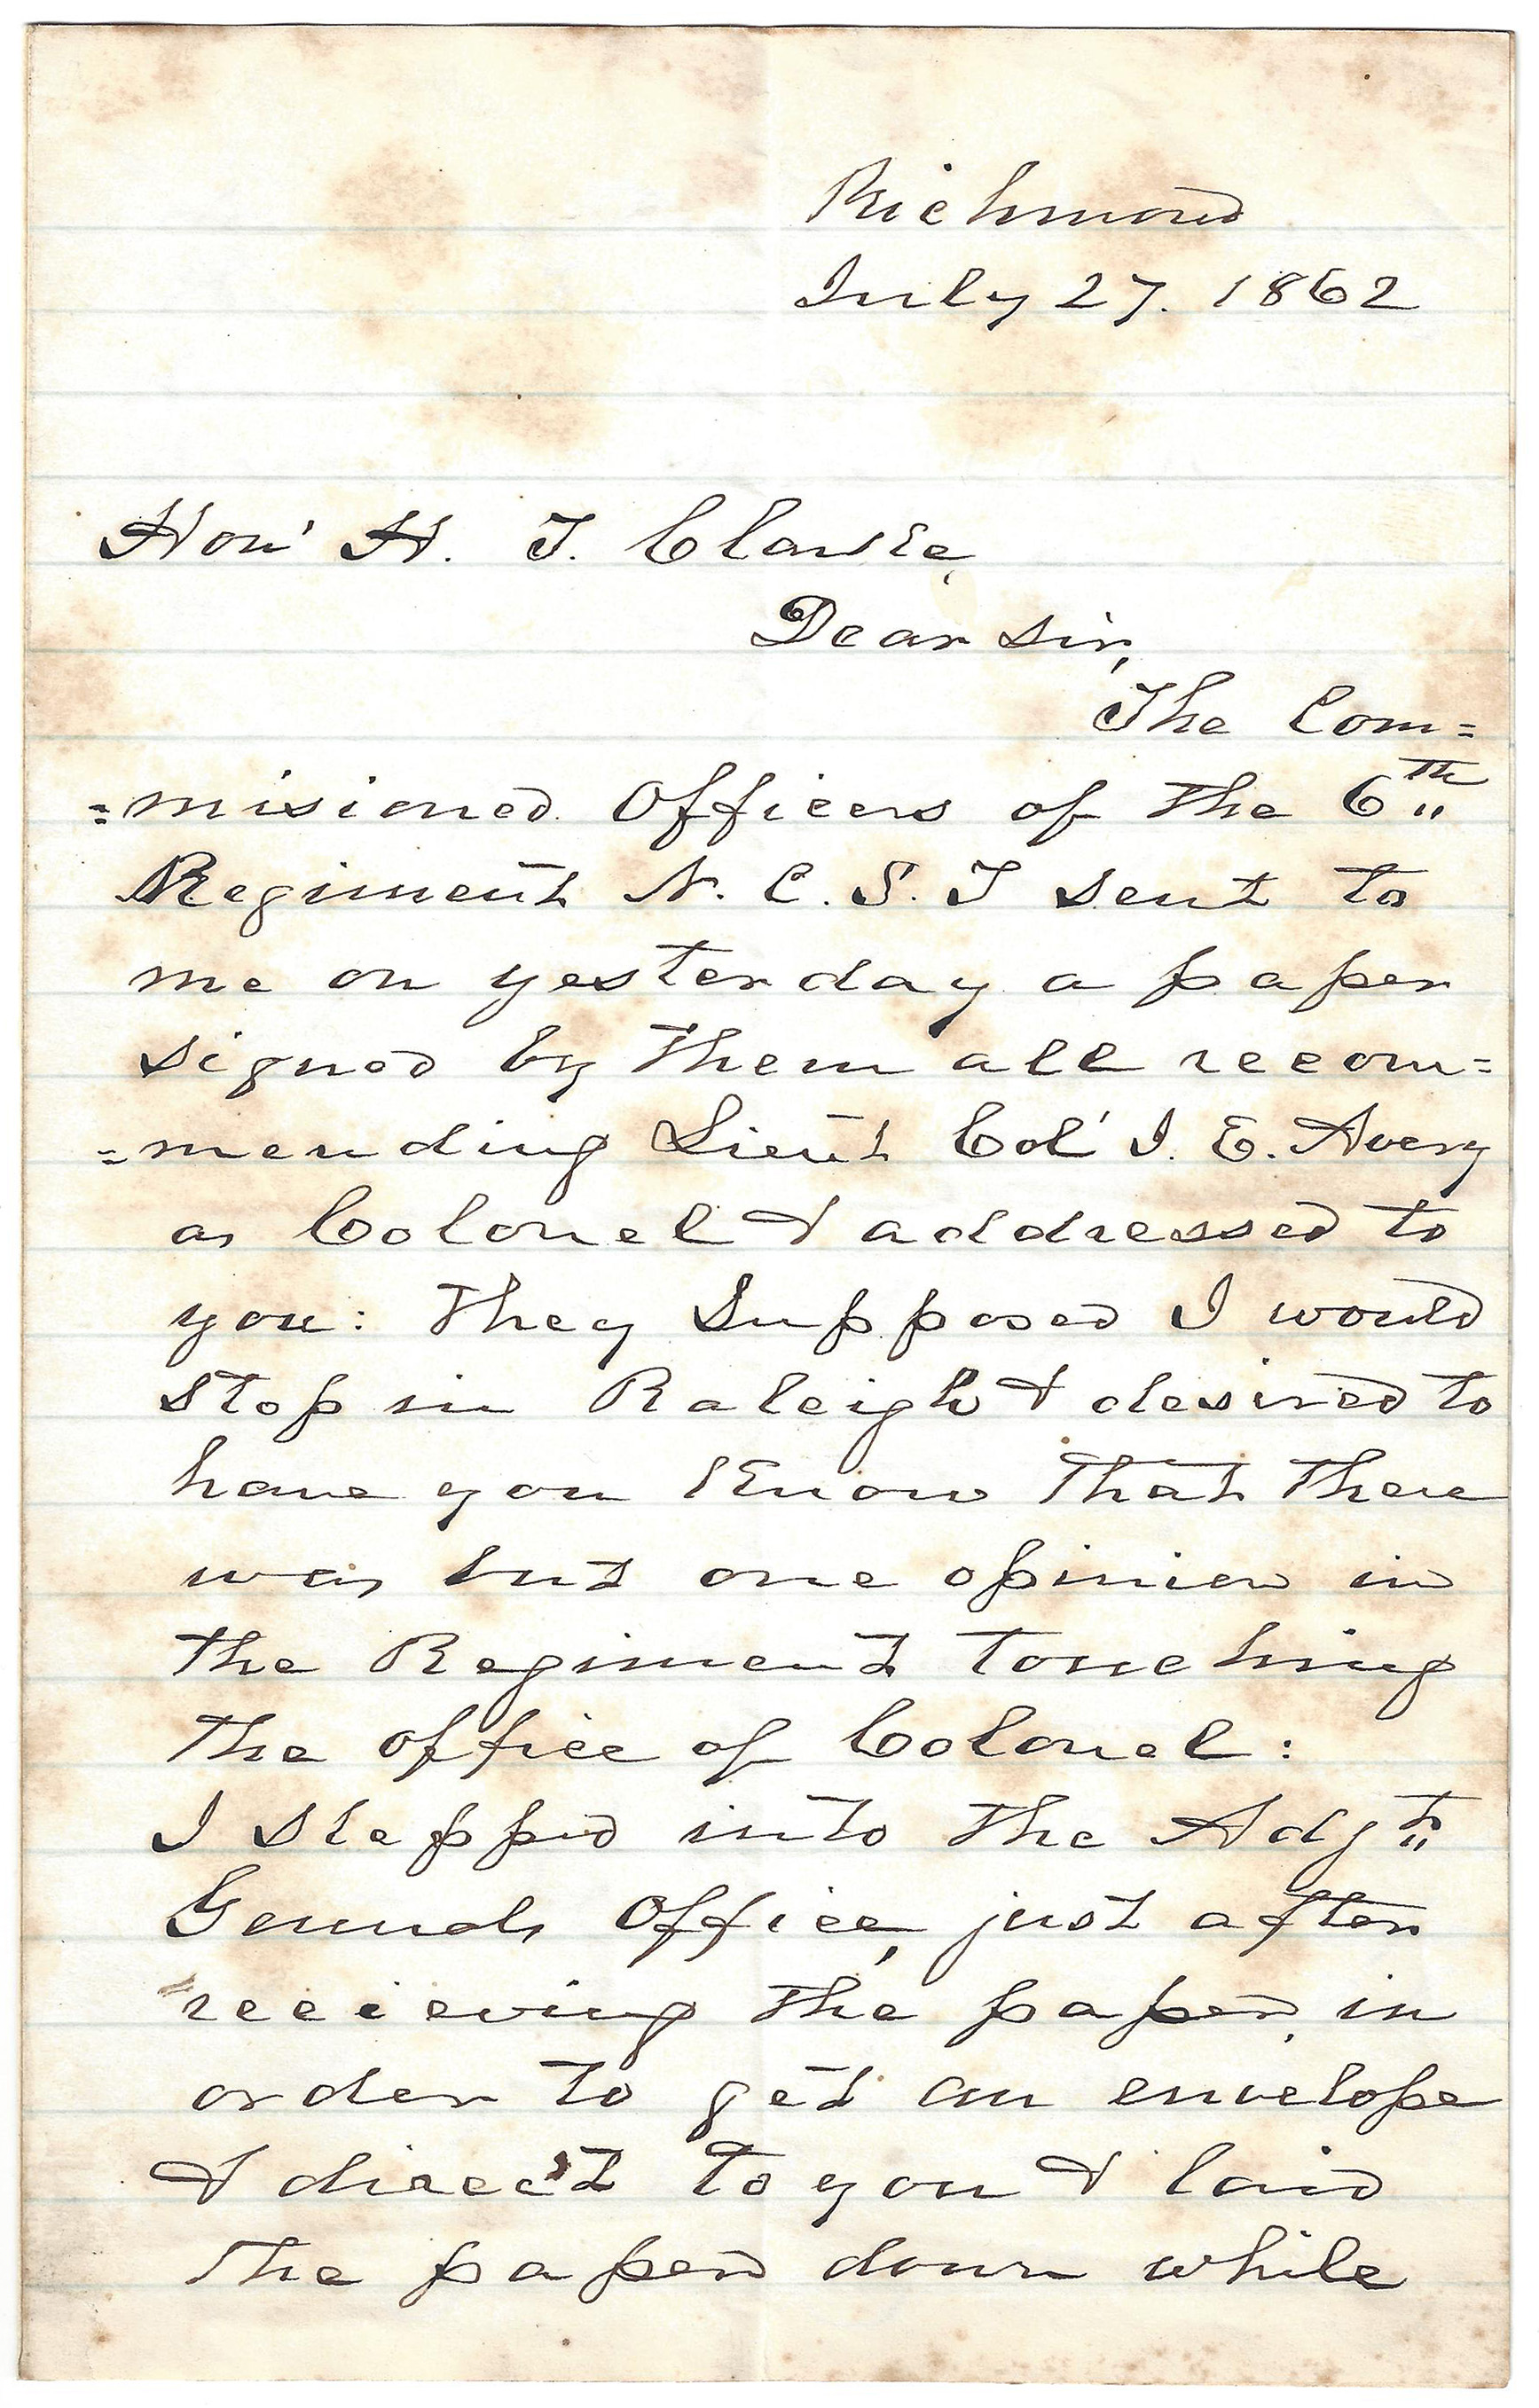 Richmond
July 27. 1862
Hon' H. T. Clarke,
Dear Sir,
The Com=
=misioned Officers of the 6th
Regiment N. C. S. T sent to
me on yesterday a paper
signed by them all recom=
=mending Lieut Col' I. E. Avery
as Colonel & addressed to
you: They Supposed I would
stop in Raleigh & desired to
have you Know that there
was but one opinion in
the Regiment touching
the office of Colonel:
I stepped into the Adjt
Generals Office, just after
receieving the paper, in
order to get an envelope
& direct to you & laid
the paper down while